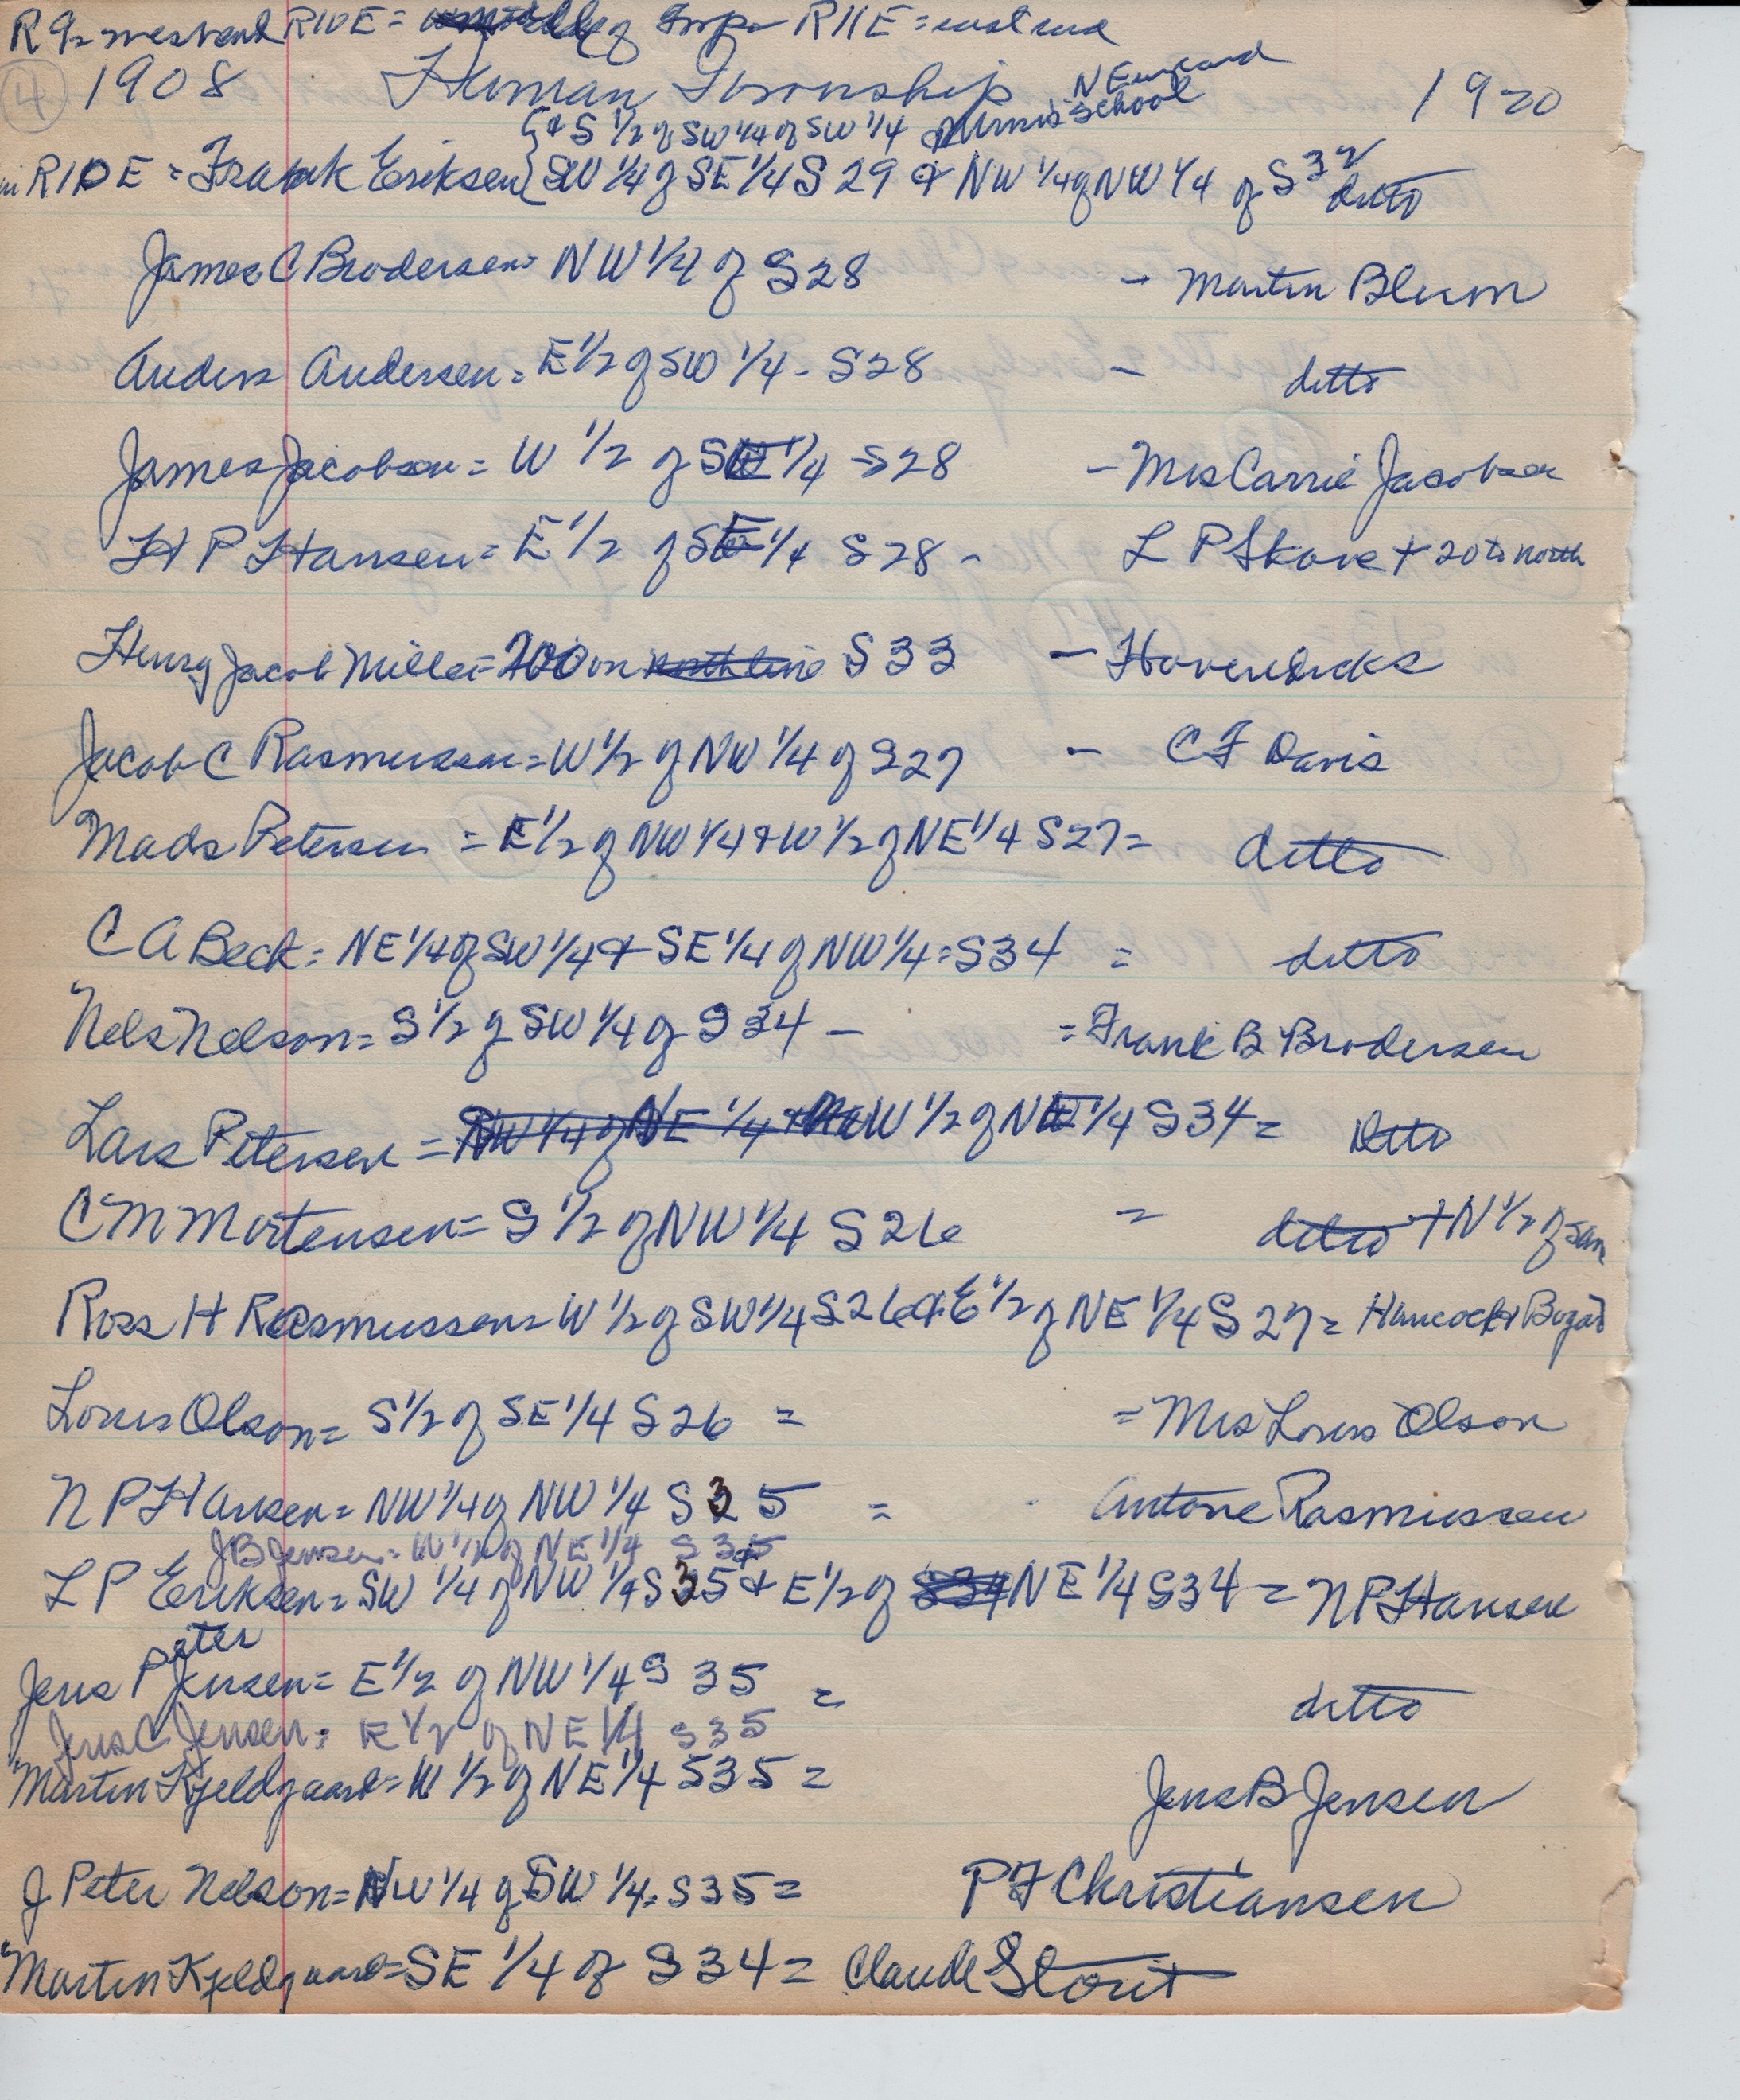 R9 = west end R10E = middle of Twp R11E = east end
4 1908 Human Township NE wcard 1920
{ & S 1/2 of SW 1/4 of SW 1/4 school
in R10E = Frank Eriksen { SW 1/4 of SE 1/4 S 29 & NW 1/4 of NW 1/4 of S 32 ditto
James C Brodersen = NW 1/4 of S28 - Martin Blum
Anders Andersen = E 1/2 of SW 1/4 - S28 - ditto
James Jacobsen = W 1/2 of SE 1/4 S28 - Mrs Carrie Jacobsen
H P Hansen = E 1/2 of SE 1/4 S28 - L P Skov + 20 to north
Henry Jacob Miller = 200 on north line S33 - Hovendicks
Jacob C Rasmussen = W 1/2 of NW 1/4 of S27 - C F Davis
Mads Petersen = E 1/2 of NW 1/4 + W 1/2 of NE 1/4 S27 = ditto
C A Beck = NE 1/4 of SW 1/4 + SE 1/4 of NW 1/4 = S34 = ditto
Nels Nelson = S 1/2 of SW 1/4 of S34 - = Frank B Brodersen
Lars Petersen = NW 1/4 of NE 1/4 + W 1/2 of NE 1/4 S34 = Ditto
C M Mortensen = S 1/2 of NW 1/4 S26 = ditto + N 1/2 of sam
Ross H Rasmussen = W 1/2 of SW 1/4 S26 & E 1/2 of NE 1/4 S27 = Hancock +
Louis Olson = S 1/2 of SE 1/4 S26 = = Mrs Louis Olson
N P Hansen = NW 1/4 of NW 1/4 S35 = Antone Rasmussen
J B Jensen = W 1/2 of NE 1/4 S35
L P Eriksen = SW 1/4 of NW 1/4 S35 & E 1/2 of S34 NE 1/4 S34 = N P Hansen
Peter
Jens P Jensen = E 1/2 of NW 1/4 S 35 = ditto
Jens C Jensen = E 1/2 of NE 1/4 S35
Martin Kjeldgaard = W 1/2 of NE 1/4 S35 = Jens B Jensen
J Peter Nelson = NW 1/4 of SW 1/4 = S35 = P F Christiansen
Martin Kjeldgaard = SE 1/4 of S34 = Claude Storit